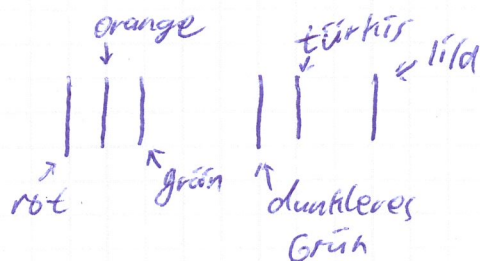 orange
türkis
lila
rot
grün
dunkleres
Grün